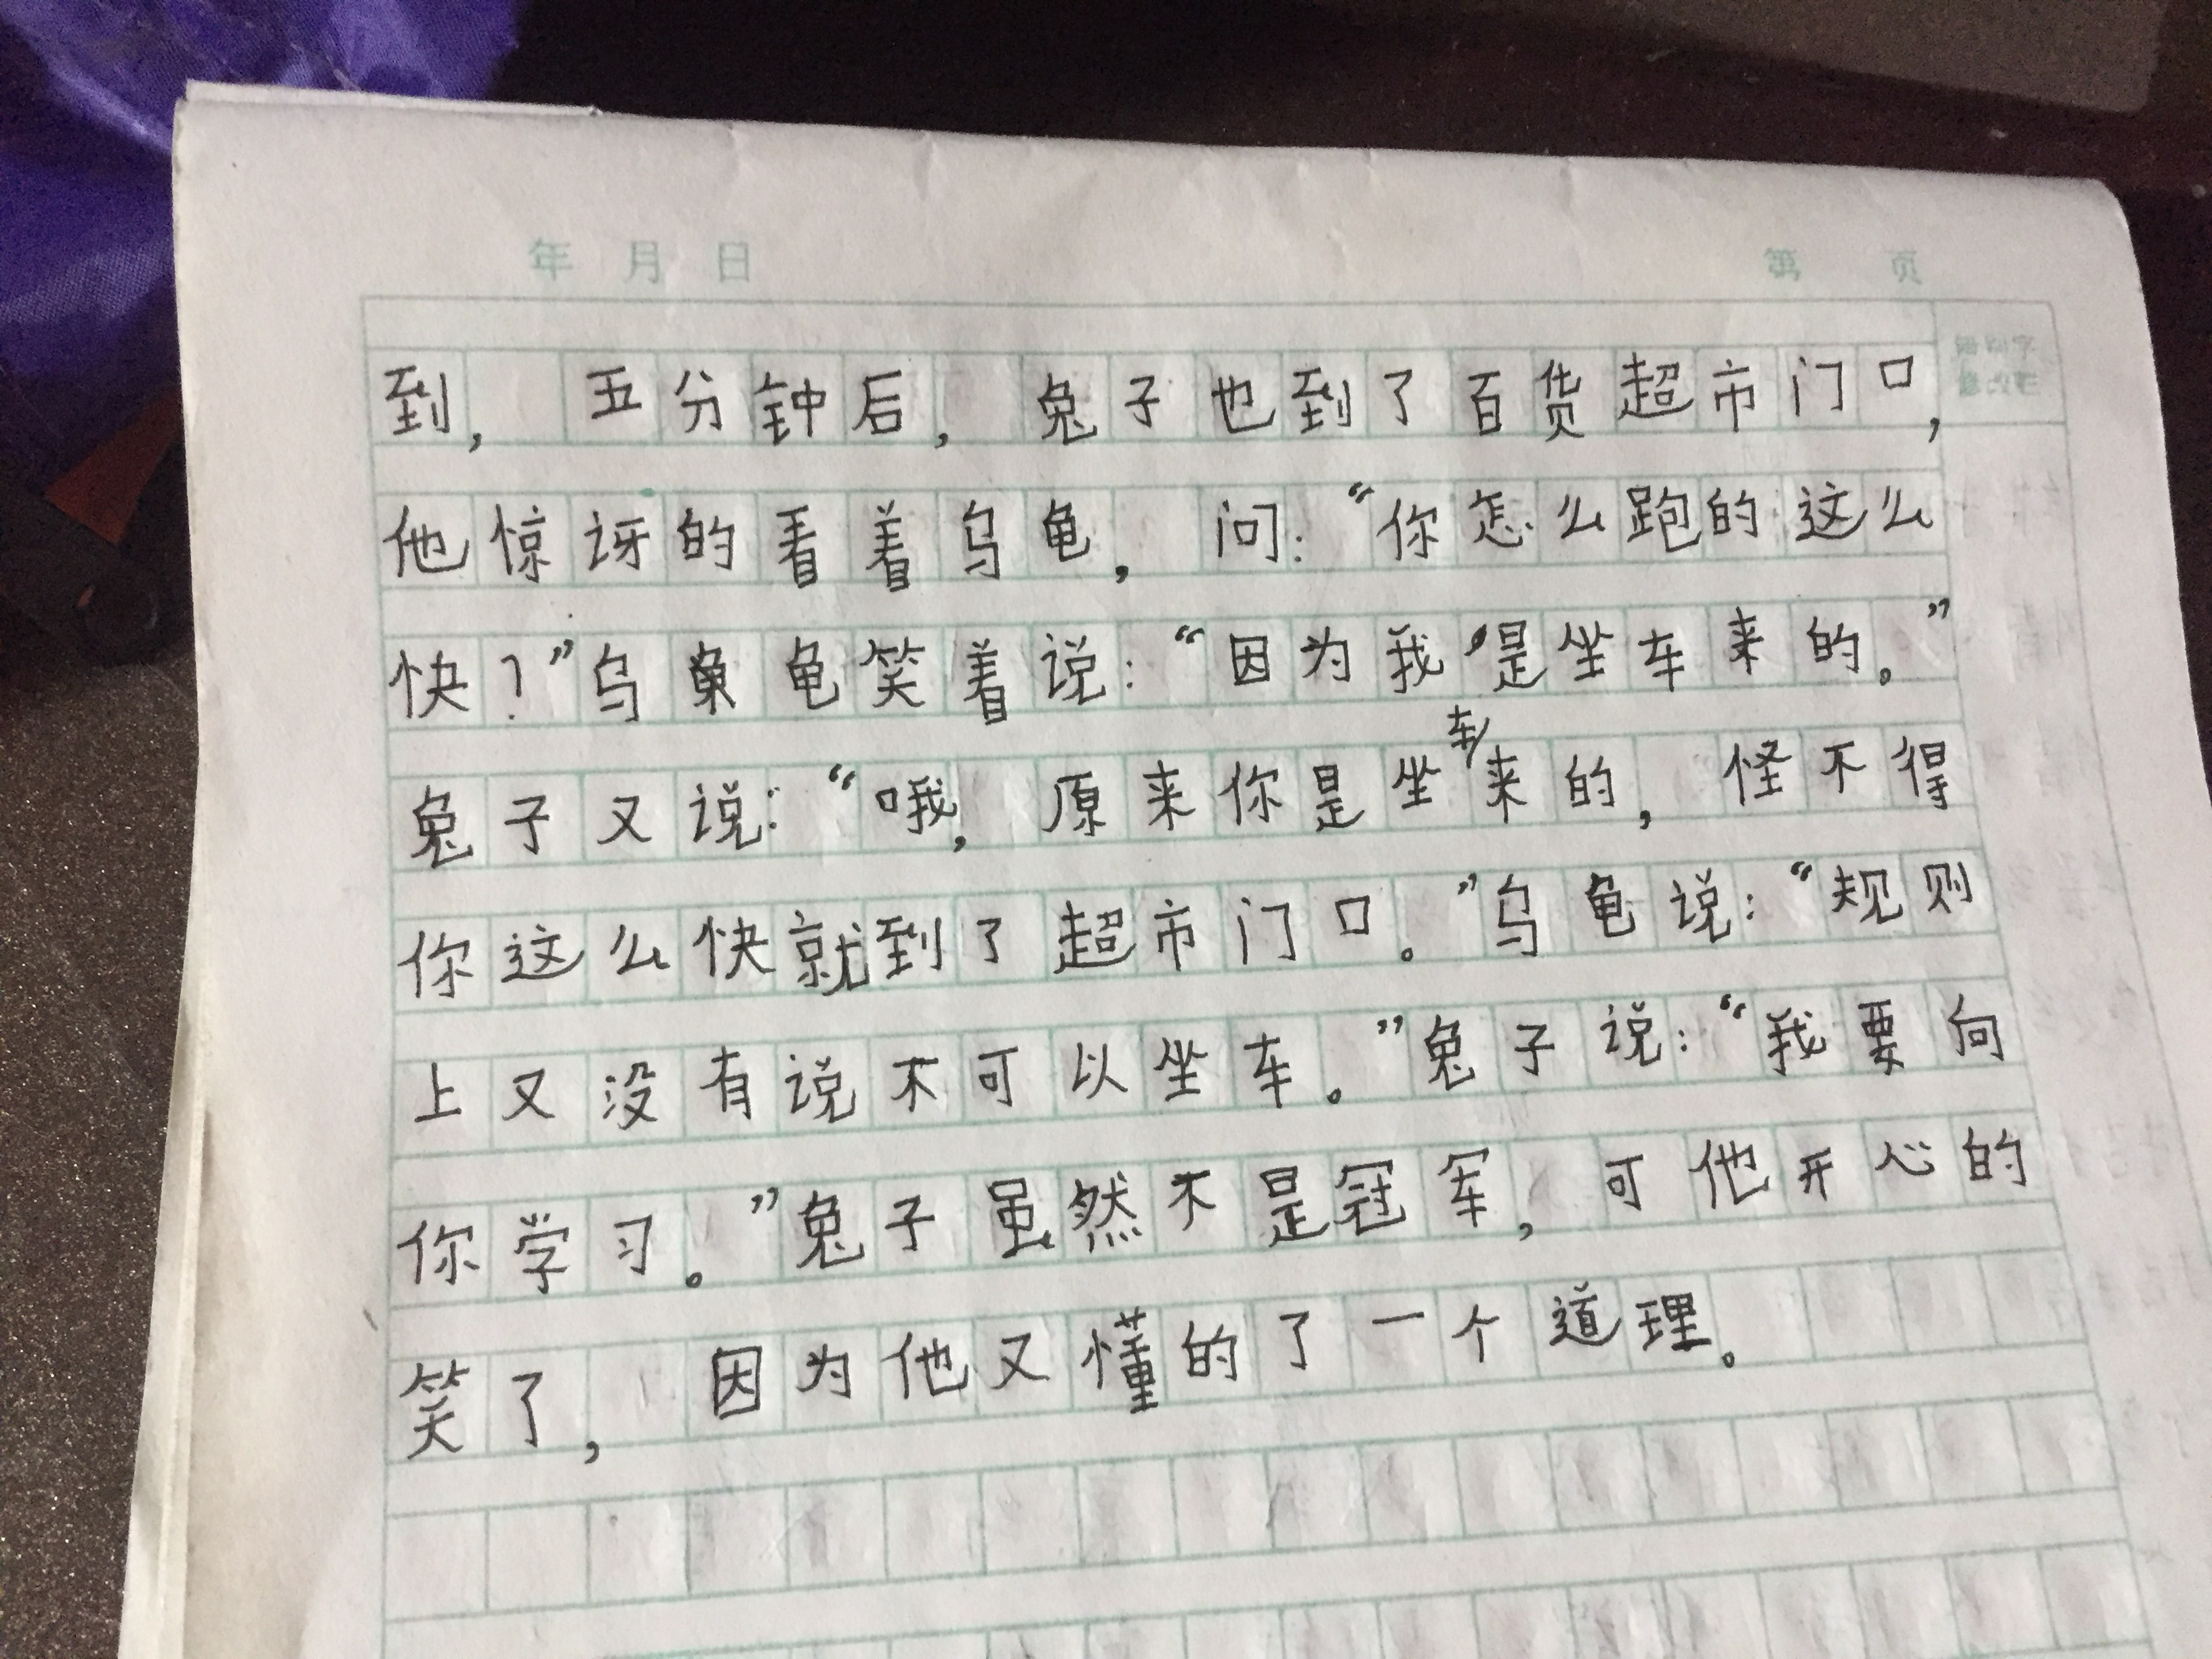 年 月 日 第 页
到，五分钟后，兔子也到了百货超市门口，
他惊讶的看着乌龟，问：“你怎么跑的这么
快？”乌龟笑着说：“因为我是坐车来的。”
兔子又说：“哦，原来你是坐车来的，怪不得
你这么快就到了超市门口。”乌龟说：“规则
上又没有说不可以坐车。”兔子说：“我要向
你学习。”兔子虽然不是冠军，可他开心的
笑了，因为他又懂的了一个道理。